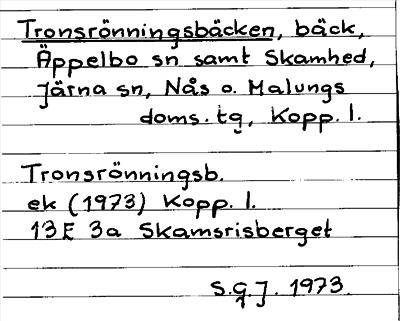 Tronsrönningsbäcken, bäck,
Äppelbo sn samt Skamhed,
Järna sn, Nås o. Malungs
doms. tg, Kopp. l.
Tronsrönningsb.
ek (1973) Kopp. l.
13E 3a Skamsrisberget
S.G.J. 1973.